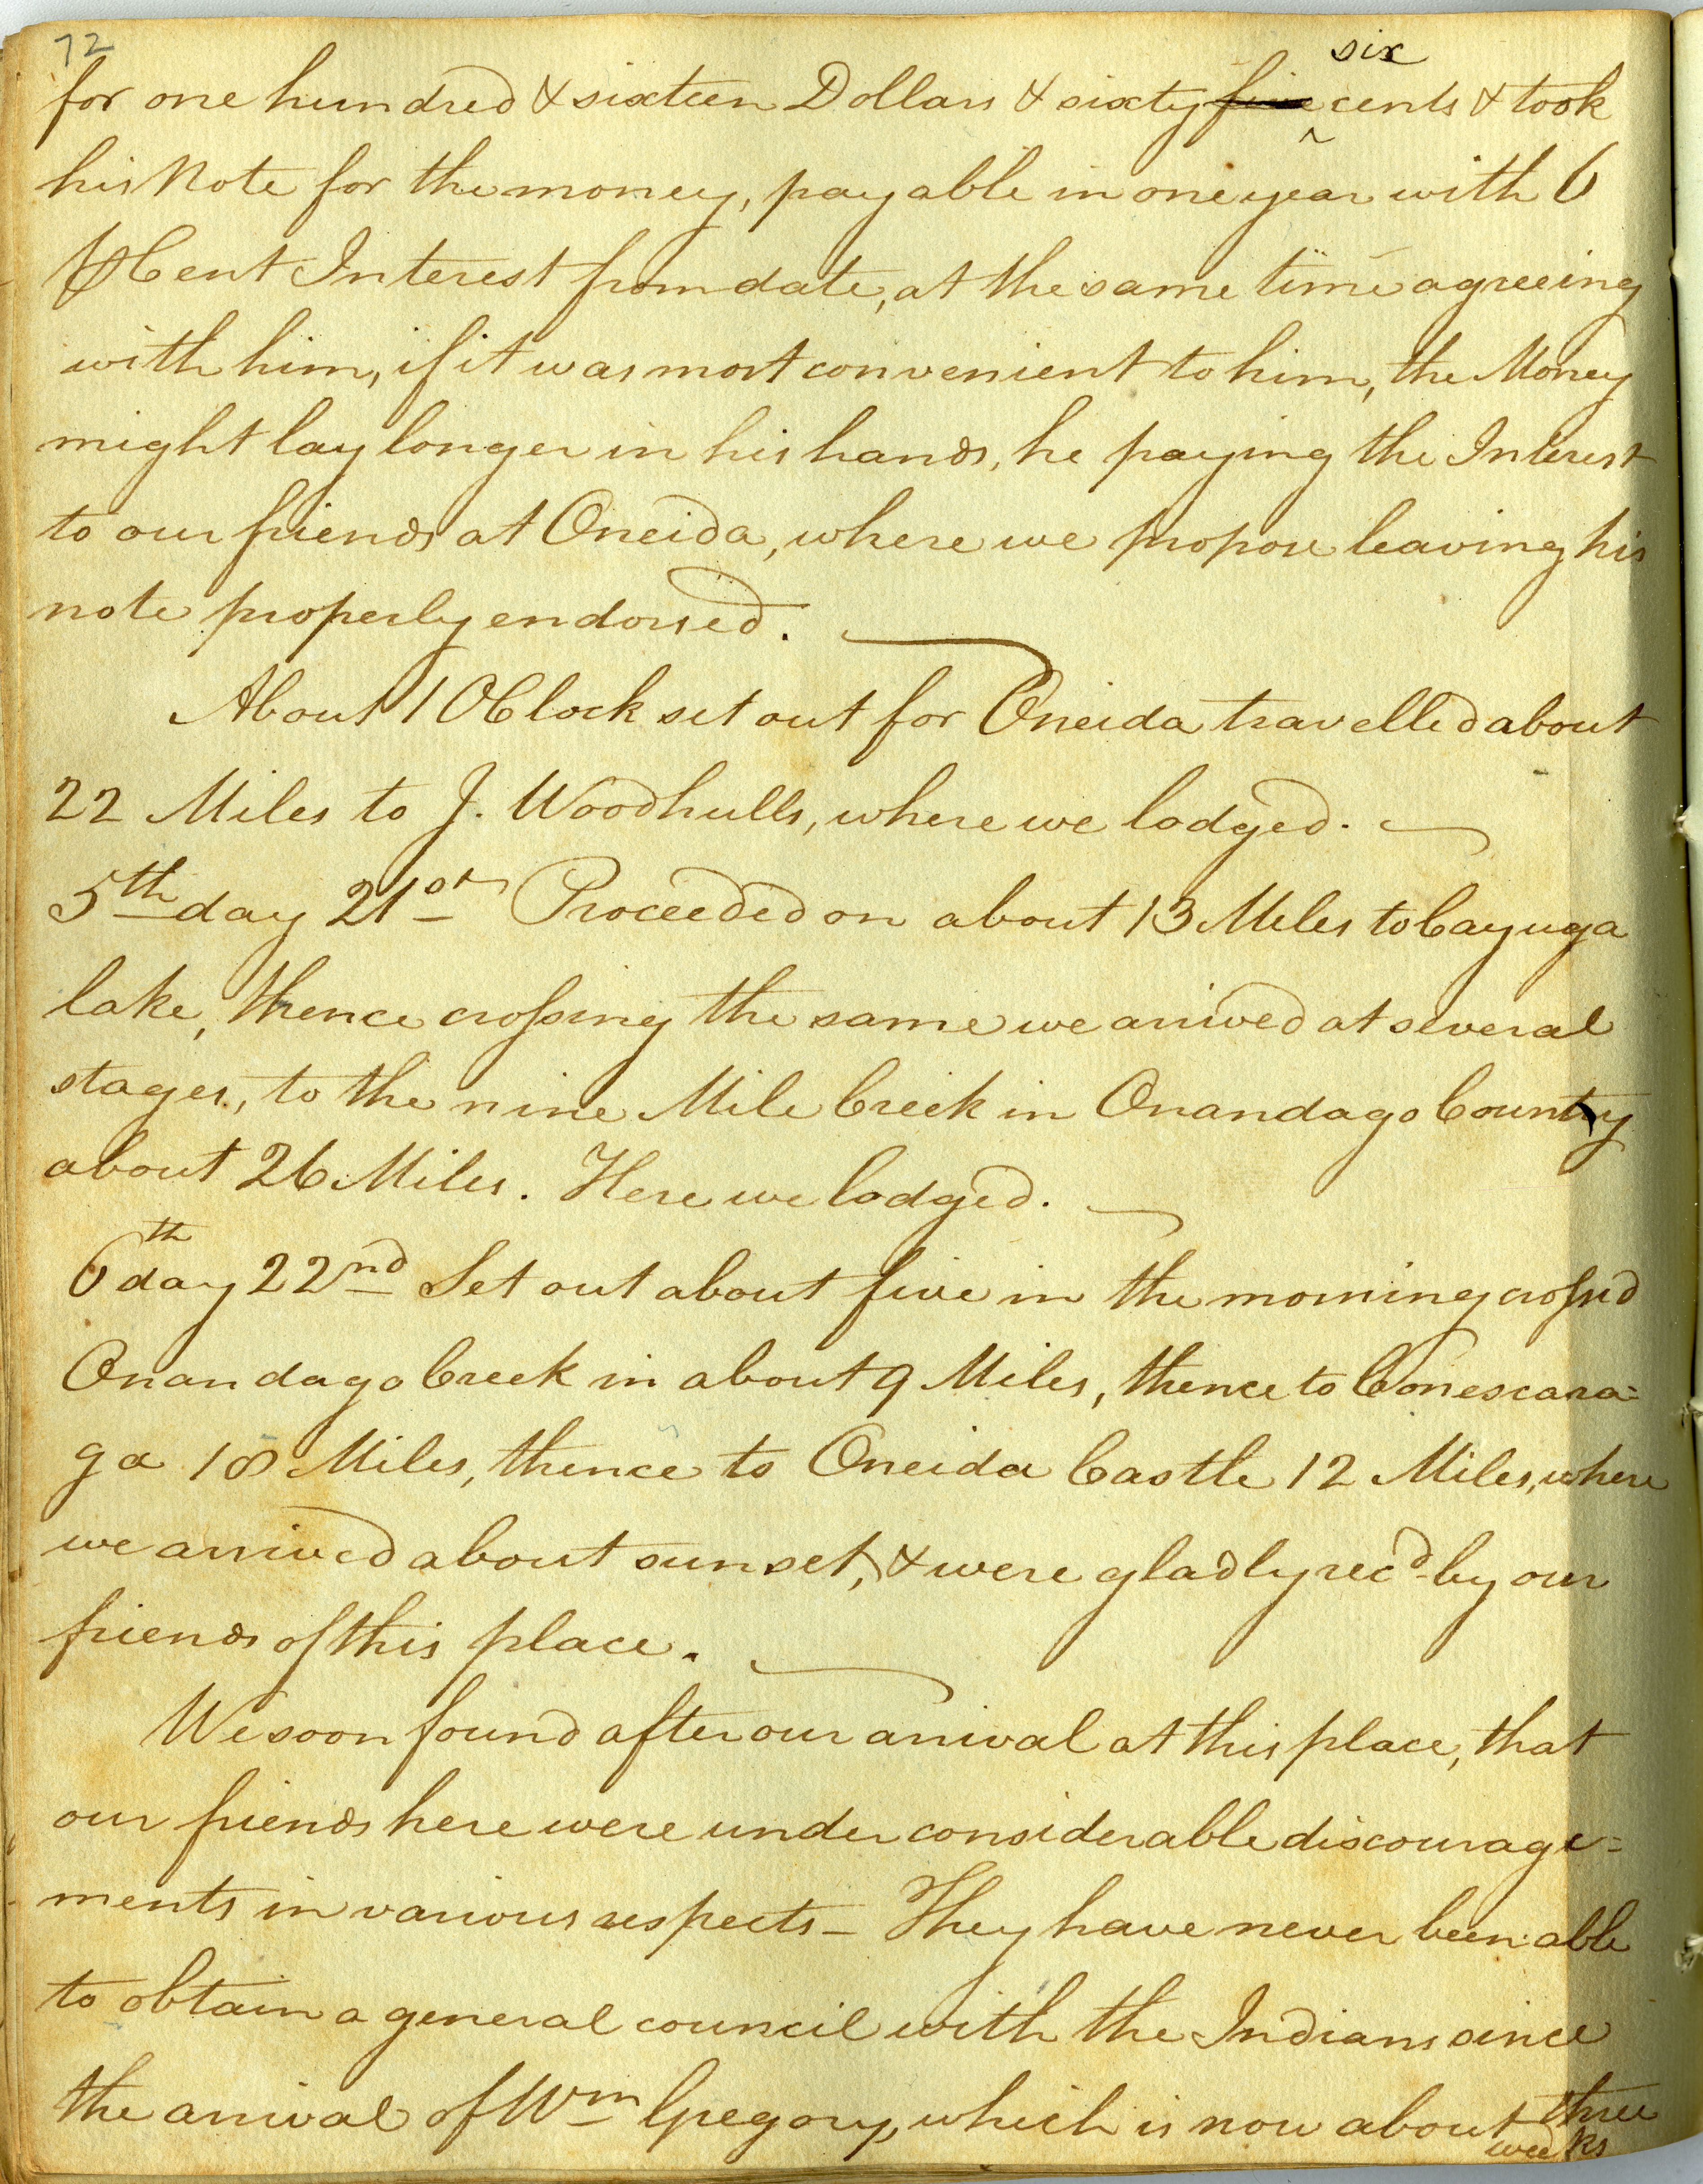 72
for one hundred & sixteen Dollars & sixty five six cents & took
his Note for the money, payable in one year with 6
⅌ Cent Interest from date, at the same time agreeing
with him, if it was most convenient to him, the Money
might lay longer in his hands, he paying the Interest
to our friends at Oneida, where we propose leaving his
note properly endorsed.
About 1 OClock set out for Oneida travelled about
22 Miles to J. Woodhulls, where we lodged.
5th day 21st Proceeded on about 13 Miles to Cayuga
lake, thence crossing the same we arrived at several
stages, to the nine Mile Creek in Onandago County
about 26 Miles. Here we lodged.
6th day 22nd Set out about five in the morning crossed
Onandago Creek in about 9 Miles, thence to Conescara=
ga 18 Miles, thence to Oneida Castle 12 Miles, where
we arrived about sunset, & were gladly recd by our
friends of this place.
We soon found after our arrival at this place, that
our friends here were under considerable discourage=
ments in various respects – They have never been able
to obtain a general council with the Indians since
the arrival of Wm Gregory, which is now about three
weeks